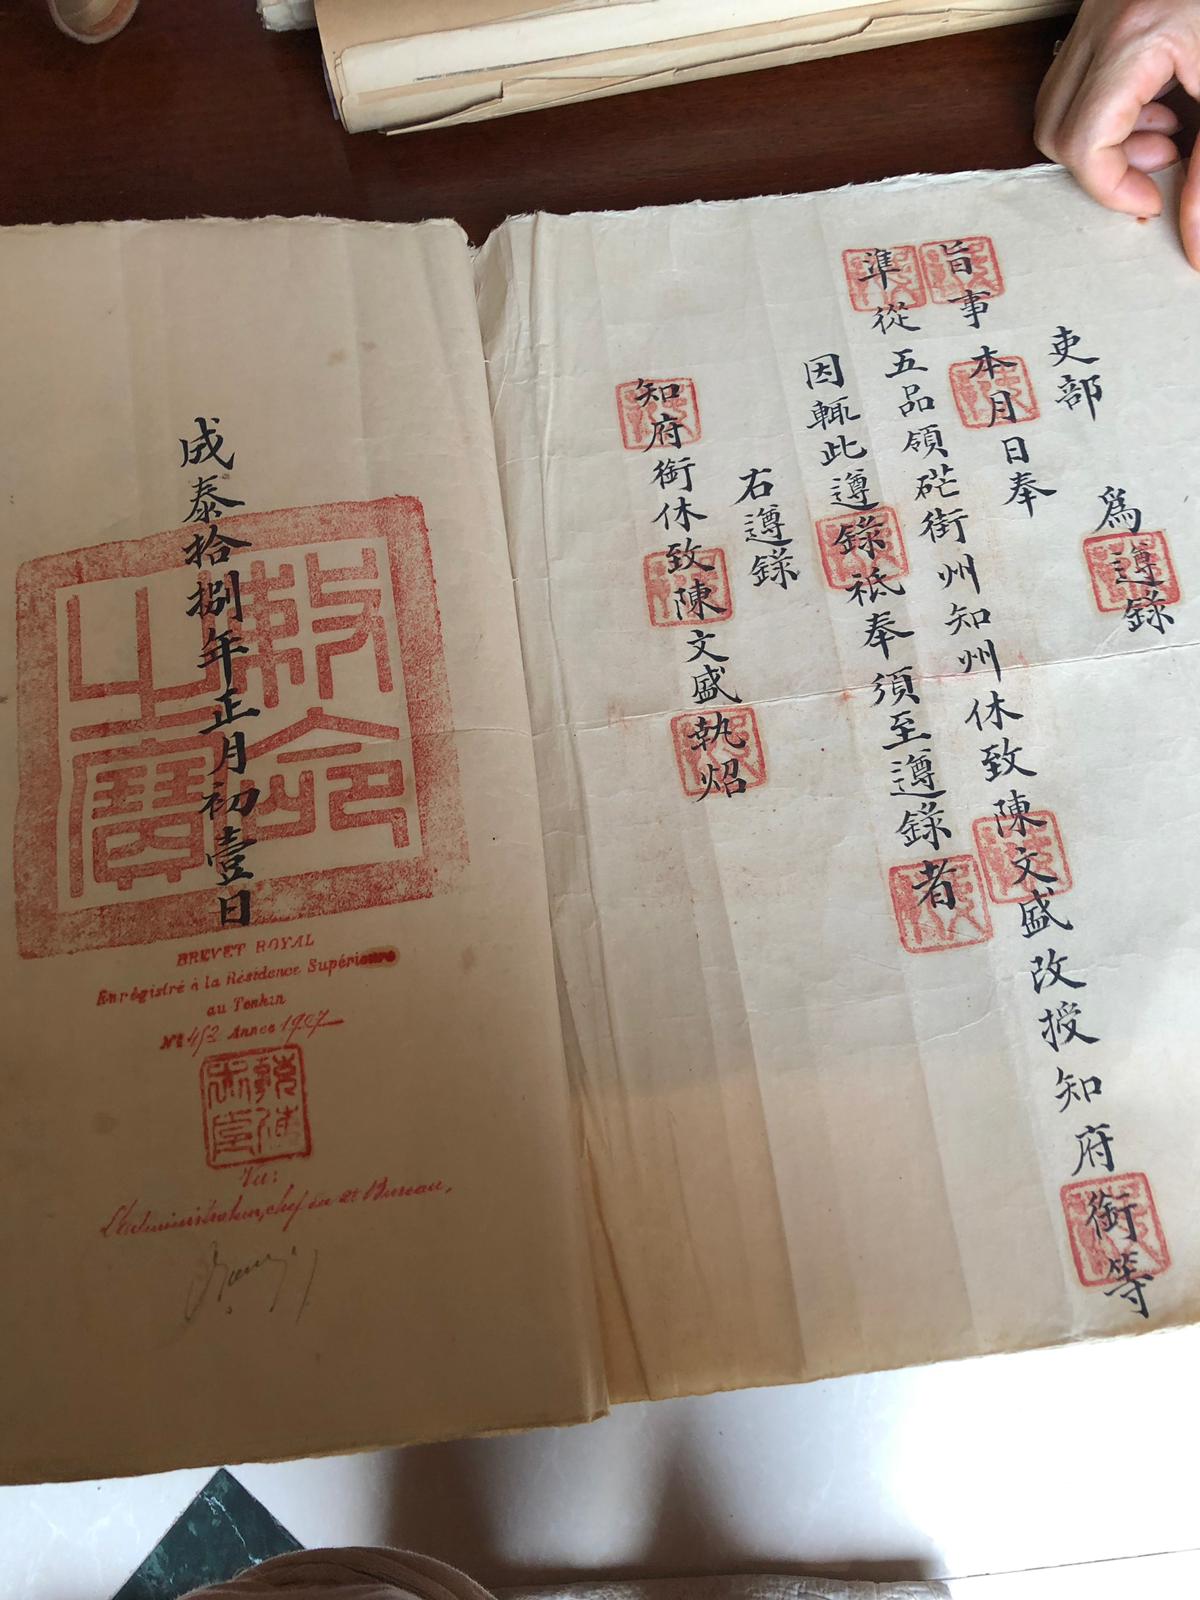 吏部
爲遵錄
事本月日奉
旨
準從五品領硭街州知州休致陳文盛改授知府銜等
因輒此遵錄祗奉須至遵錄者
右遵錄
知府銜休致陳文盛執炤
成泰拾捌年正月初壹日
敕命之寶
BREVET ROYAL
Enrégistré à la Résidence Supérieure
au Tonkin
Nº 452 Année 1907
Vu:
L'Administrateur, chef du 2e Bureau,